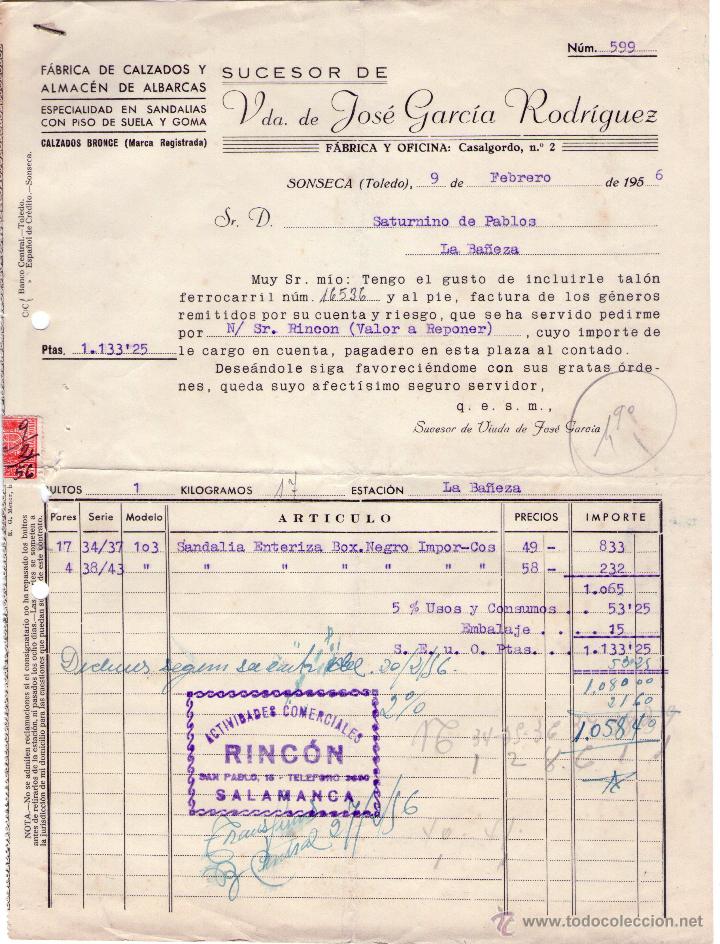 Núm. 599
FÁBRICA DE CALZADOS Y
ALMACÉN DE ALBARCAS
ESPECIALIDAD EN SANDALIAS
CON PISO DE SUELA Y GOMA
CALZADOS BRONCE (Marca Registrada)
SUCESOR DE
Vda. de José García Rodríguez
FÁBRICA Y OFICINA: Casalgordo, n.º 2
SONSECA (Toledo), 9 de Febrero de 1956
C/C/ Banco Central.—Toledo.
» Español de Crédito.—Sonseca.
Sr. D. Saturnino de Pablos
La Bañeza
Muy Sr. mío: Tengo el gusto de incluirle talón
ferrocarril núm. 16536 y al pie, factura de los géneros
remitidos por su cuenta y riesgo, que se ha servido pedirme
por N/ Sr. Rincon (Valor a Reponer), cuyo importe de
Ptas. 1.133'25 le cargo en cuenta, pagadero en esta plaza al contado.
Deseándole siga favoreciéndome con sus gratas órde-
nes, queda suyo afectísimo seguro servidor,
q. e. s. m.,
Sucesor de Viuda de José García
9
2
56
BULTOS 1 KILOGRAMOS 17 ESTACIÓN La Bañeza
Pares Serie Modelo ARTICULO PRECIOS IMPORTE
17 34/37 103 Sandalia Enteriza Box.Negro Impor-Cos 49 - 833
4 38/43 " " " " " " " 58 - 232
1.065
5 % Usos y Consumos . . . 53'25
Embalaje . . . . 15
S. E. u O. Ptas. . . 1.133'25
53'25
20/2/56.
1,080 00
2% 21 60
1.058 40
ACTIVIDADES COMERCIALES
RINCÓN
SAN PABLO, 16 - TELEFONO
SALAMANCA
Central
NOTA.—No se admiten reclamaciones si el consignatario no ha repasado los bultos
antes de retirarlos de la estación, ni pasados los ocho días.—Las se someten a
la jurisdicción de mi domicilio para las cuestiones que puedan de este contrato.
www.todocoleccion.net